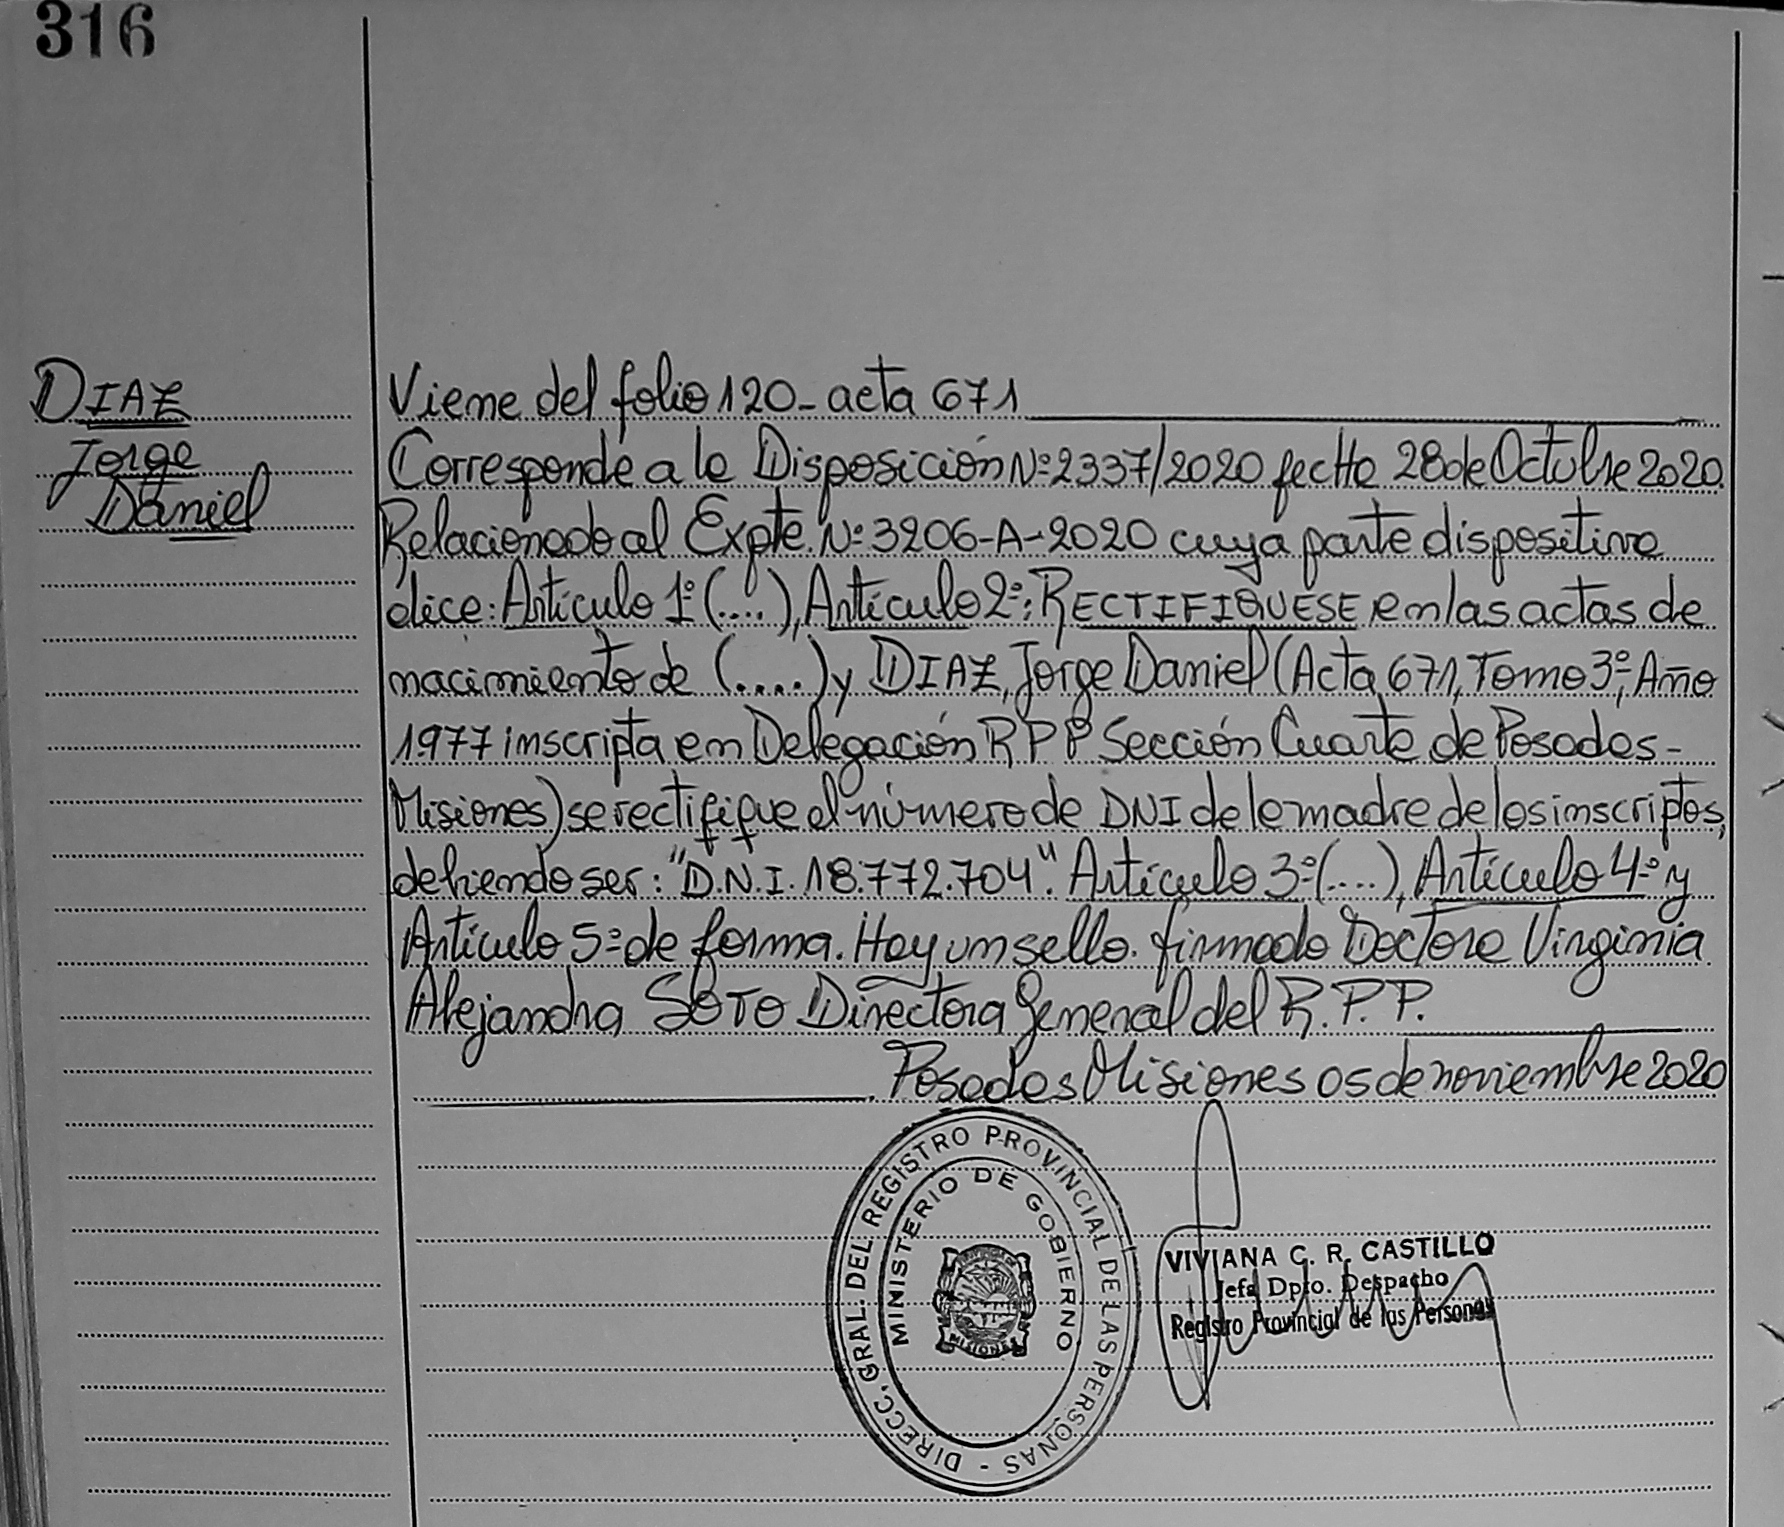 316
DIAZ
Jorge
Daniel
Viene del folio 120 - acta 671
Corresponde a la Disposición Nº 2337/2020 fecha 28 de Octubre 2020
Relacionado al Expte. Nº 3206-A-2020 cuya parte dispositiva
dice: Artículo 1º (....), Artículo 2º: RECTIFIQUESE en las actas de
nacimiento de (.....) y DIAZ, Jorge Daniel (Acta 671, Tomo 3º, Año
1977 inscripta en Delegación RPP Sección Cuarta de Posadas-
Misiones) se rectifique el número de DNI de la madre de los inscriptos,
debiendo ser: "D.N.I. 18.772.704". Artículo 3º (....), Artículo 4º y
Artículo 5º de forma. Hay un sello. firmado Doctora Virginia
Alejandra SOTO Directora General del R.P.P.
Posadas Misiones 05 de noviembre 2020
DIRECC. GRAL. DEL REGISTRO PROVINCIAL DE LAS PERSONAS -
MINISTERIO DE GOBIERNO
MISIONES
VIVIANA C. R. CASTILLO
Jefa Dpto. Despacho
Registro Provincial de las Personas